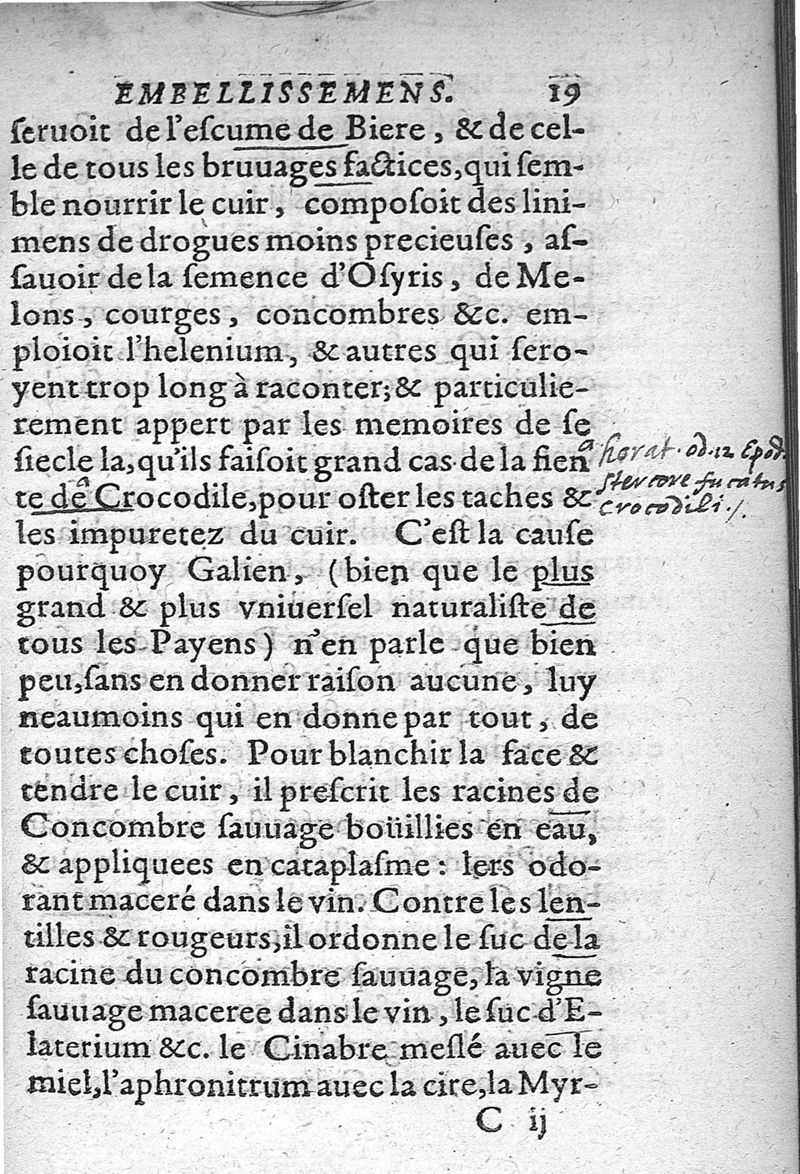 EMBELLISSEMENS. 19
ſeruoit de l'eſcume de Biere, & de cel-
le de tous les bruuages factices, qui ſem-
ble nourrir le cuir, compoſoit des lini-
mens de drogues moins precieuſes, aſ-
ſauoir de la ſemence d'Oſyris, de Me-
lons, courges, concombres &c. em-
ploioit l'helenium, & autres qui ſero-
yent trop long à raconter; & particulie-
rement appert par les memoires de ſe
ſiecle la, qu'ils faiſoit grand cas de la fien
a horat. od. 12 Epod.
te de a Crocodile, pour oſter les taches &
ſtercore fucatus
Crocodili ./.
les impuretez du cuir. C'eſt la cauſe
pourquoy Galien, (bien que le plus
grand & plus vniuerſel naturaliſte de
tous les Payens) n'en parle que bien
peu, ſans en donner raiſon aucune, luy
neaumoins qui en donne par tout, de
toutes choſes. Pour blanchir la face &
tendre le cuir, il preſcrit les racines de
Concombre ſauuage boüillies en eau,
& appliquees en cataplaſme: lers odo-
rant maceré dans le vin. Contre les len-
tilles & rougeurs, il ordonne le ſuc de la
racine du concombre ſauuage, la vigne
ſauuage maceree dans le vin, le ſuc d'E-
laterium &c. le Cinabre meſlé auec le
miel, l'aphronitrum auec la cire, la Myr-
C ij